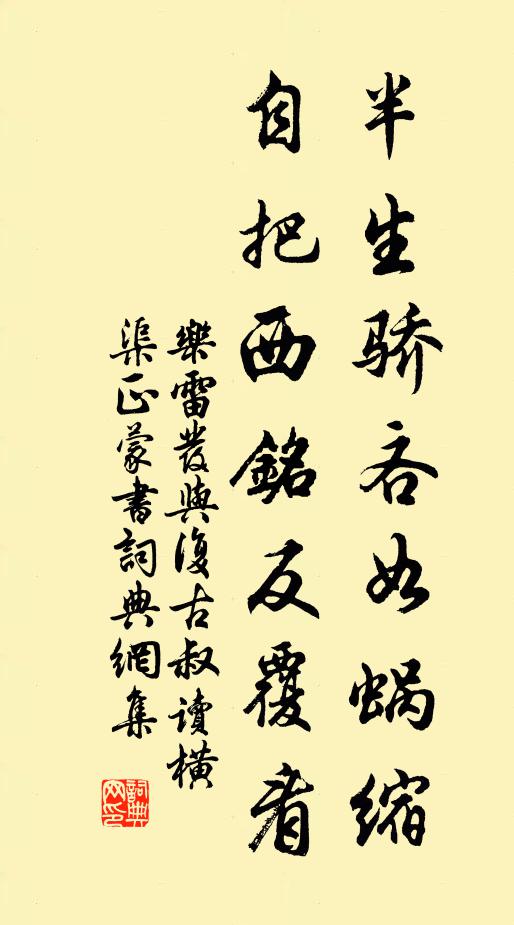 半生骄吝如蜗缩
自把西銘反覆看
樂雷發與復古叔读橫
渠正蒙書詞典網集
詞典网印